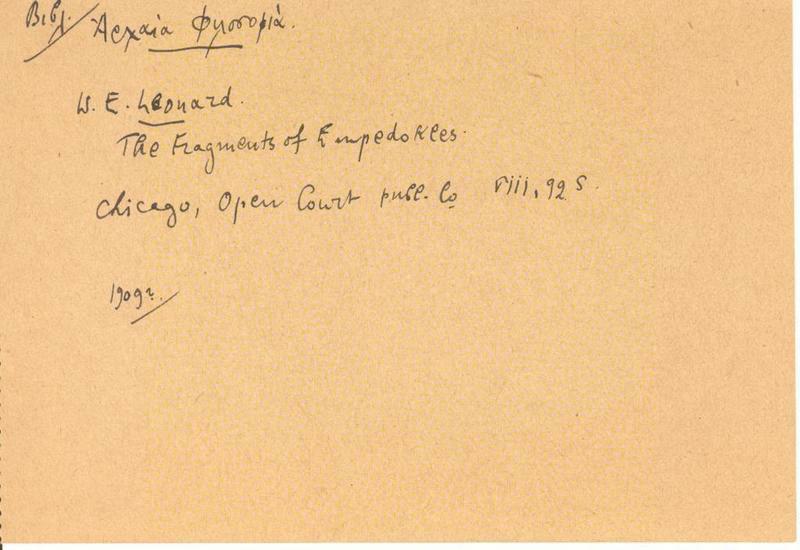 Βιβλ. Ἀρχαία Φιλοσοφία.
W. E. Leonard.
The Fragments of Empedokles.
Chicago, Open Court publ. Co VIII, 92 S.
1909